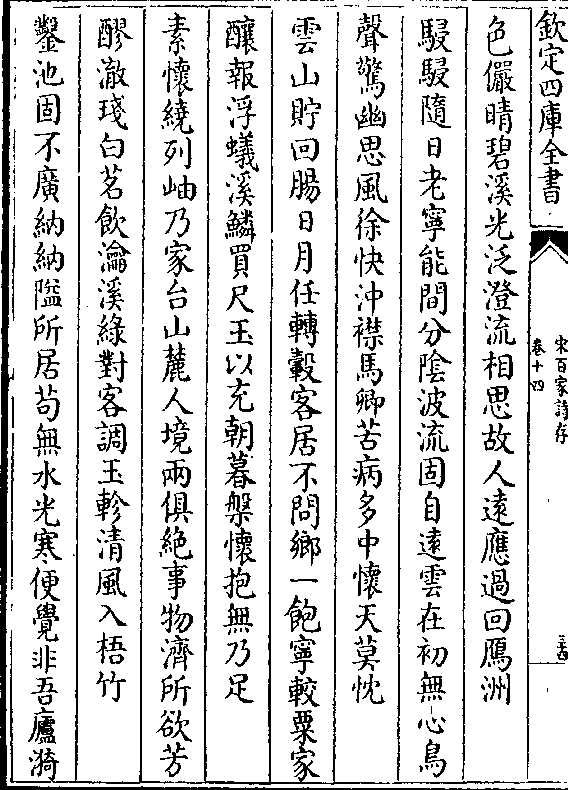 欽定四庫全書
宋百家詩存
卷十四
三四
色儼晴碧溪光泛澄流相思故人遠應過回鴈洲
駸駸隨日老寧能間分陰波流固自遠雲在初無心鳥
聲驚幽思風徐快沖襟馬卿苦病多中懷天莫忱
雲山貯回腸日月任轉轂客居不問鄉一飽寧較粟家
釀報浮蟻溪鱗買尺玉以充朝暮槃懷抱無乃足
素懷繞列岫乃家台山麓人境兩俱絶事物濟所欲芳
醪澈琖白茗飲瀹溪綠對客調玉軫清風入梧竹
鑿池固不廣納納隘所居苟無水光寒便覺非吾廬漪